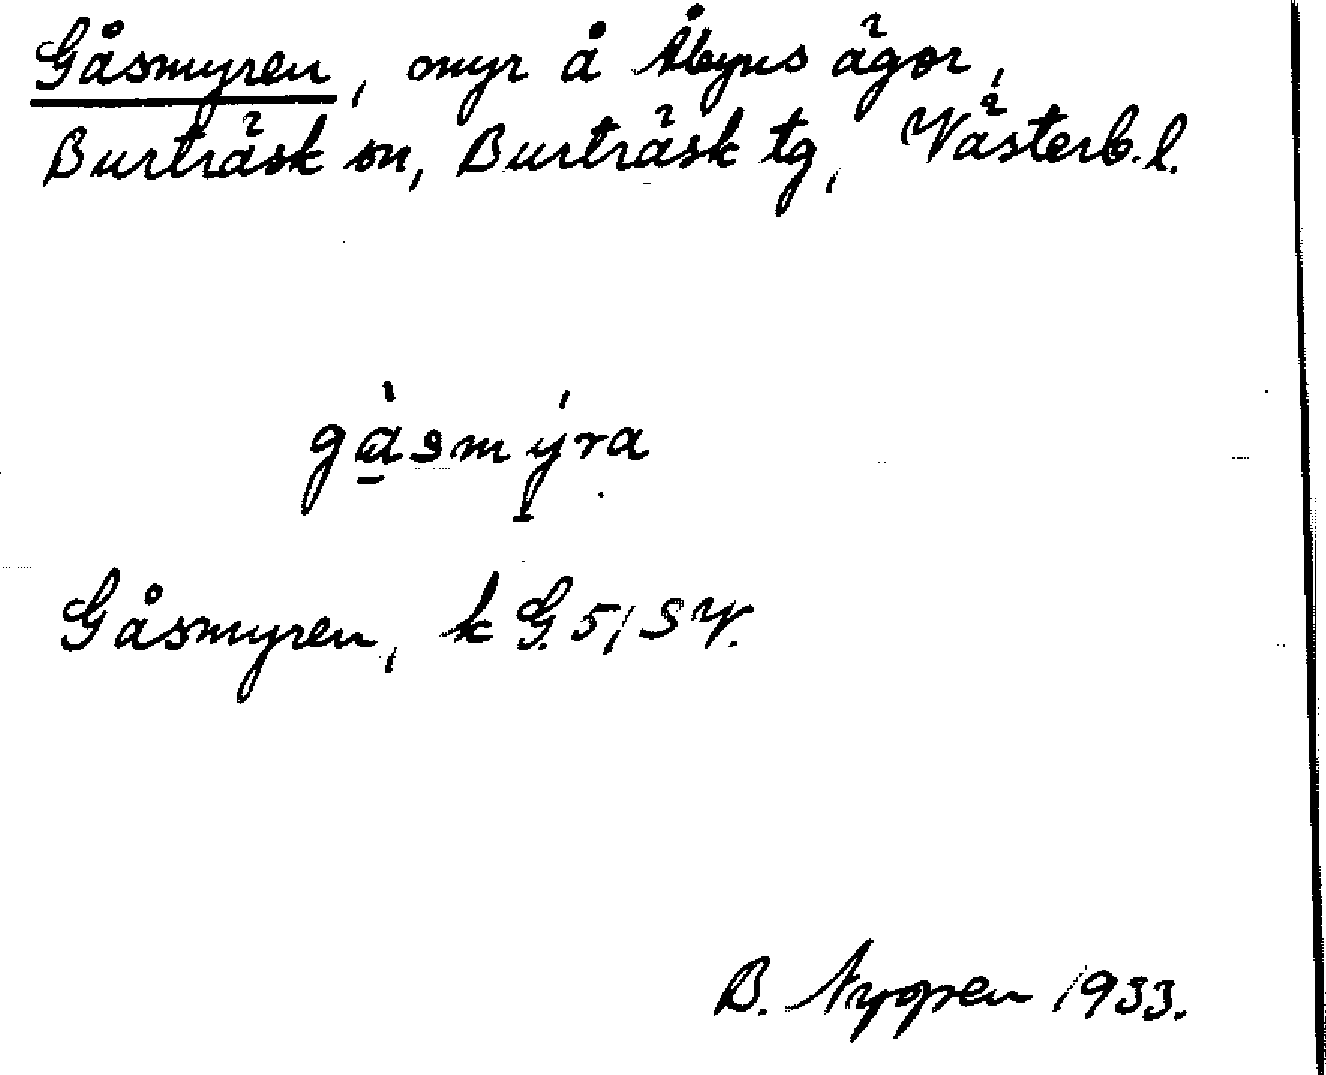 Gåsmyren, myr å Åbyns ägor,
Burträsk sn, Burträsk tg, Västerb.l.
gàsmýra
Gåsmyren, k G. 5, SV.
B. Nygren 1933.